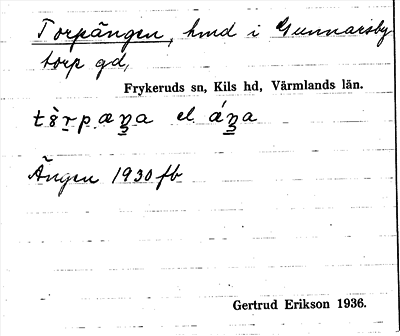 Torpängen, hmd i Gunnarsby
torp gd,
Frykeruds sn, Kils hd, Värmlands län.
el
Ängen 1930 fb
Gertrud Erikson 1936.